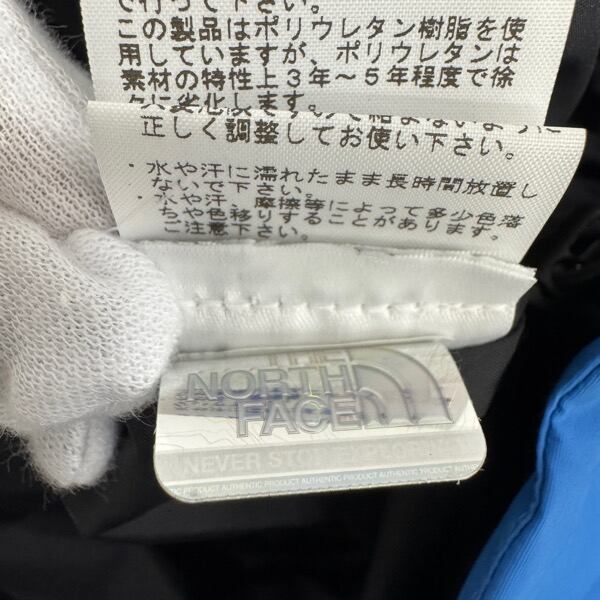 で行って下さい。
この製品はポリウレタン樹脂を使
用していますが、ポリウレタンは
素材の特性上3年～5年程度で徐
々に劣化します。
正しく調整してお使い下さい。
・水や汗に濡れたまま長時間放置し
ないで下さい。
・水や汗、摩擦等によって多少色落
ちや色移りすることがあります。
ご注意下さい。
NORTH
FACE
NEVER STOP
PRODUCT AUTHENTIC PRODUCT AUTHENTIC PRODUCT AUTHENTIC PRODUCT AUTHENTIC PRODUCT